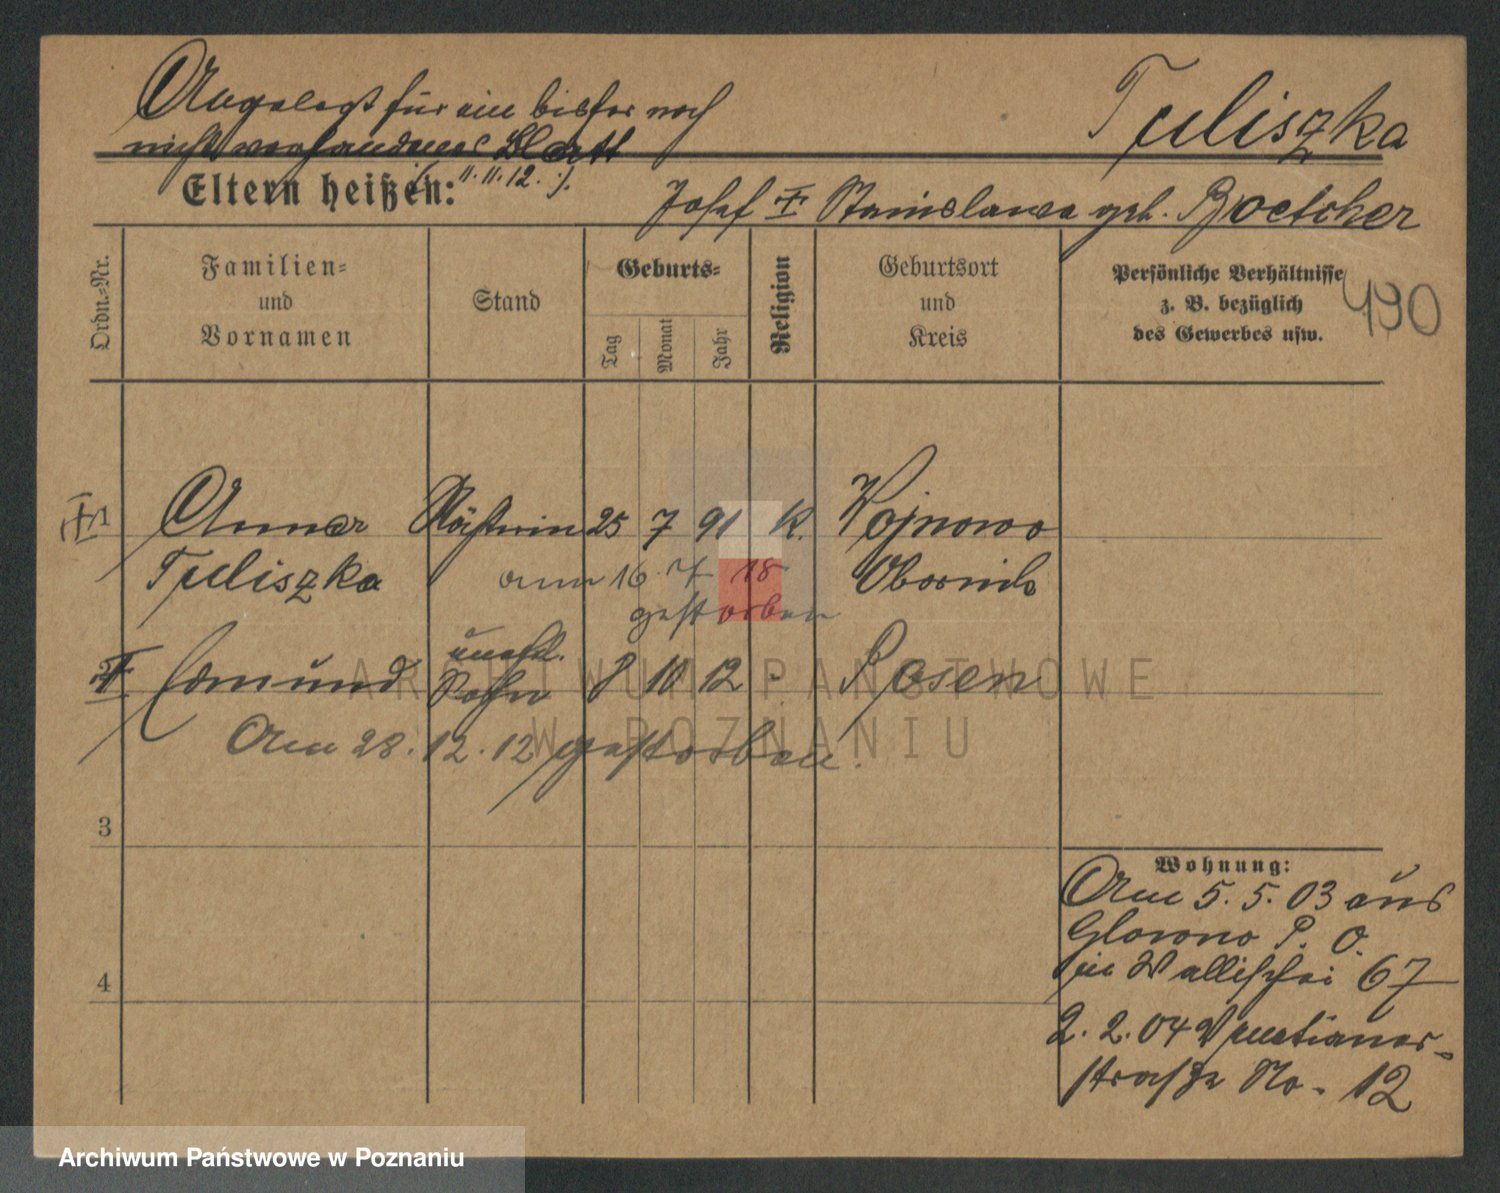 Angelegt für ein bisher noch
nicht vorhandenes Blatt
(11.11.12.)
Tuliszka
Eltern heißen: Josef ✝ Stanislawa geb. Boetcher
Ordn.-Nr.
Familien-
und
Vornamen
Stand
Geburts-
Tag
Monat
Jahr
Religion
Geburtsort
und
Kreis
Persönliche Verhältnisse
z. B. bezüglich
des Gewerbes usw.
490
1 Anna Näherin 25 7 91 K. Wojnowo
Tuliszka Obornik
am 16 7 18
gestorben
2 Edmund unehl. Sohn 8 10 12 " Posen
Am 28.12.12 gestorben.
3
4
Wohnung:
Am 5.5.03 aus
Glowno P. O.
in Wallischei 67
2.2.04 Venetianer-
straße No. 12
ARCHIWUM PAŃSTWOWE
W POZNANIU
Archiwum Państwowe w Poznaniu